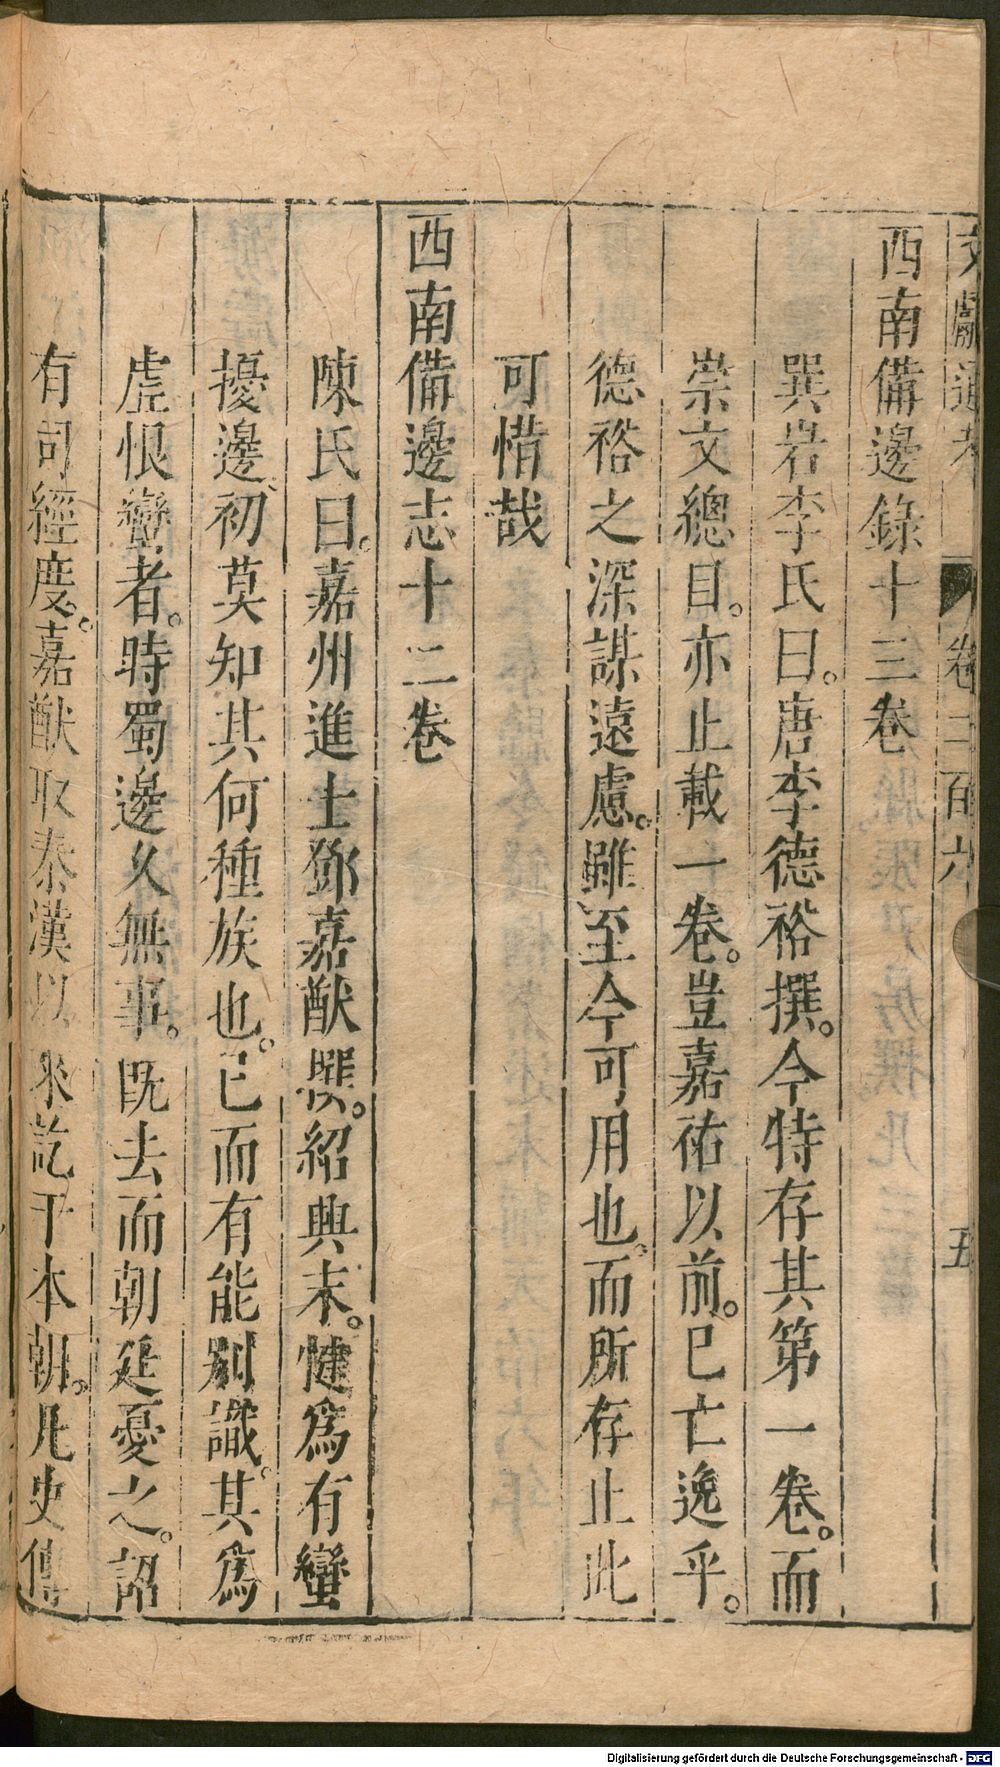 文獻通考 卷二百六 五
西南備邊錄十三卷
巽岩李氏曰。唐李德裕撰。今特存其第一卷。而
崇文總目。亦止載一卷。豈嘉祐以前。已亡逸乎。
德裕之深謀遠慮。雖至今可用也。而所存止此
可惜哉
西南備邊志十二卷
陳氏曰。嘉州進士鄧嘉猷撰。紹興末。犍爲有蠻
擾邊、初莫知其何種族也。已而有能別識。其爲
虛恨蠻者。時蜀邊久無事。旣去而朝廷憂之。詔
有司經度。嘉猷取秦漢以來訖于本朝。凡史傳
Digitalisierung gefördert durch die Deutsche Forschungsgemeinschaft - DFG